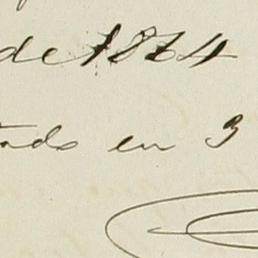 de 1864
tado en 3